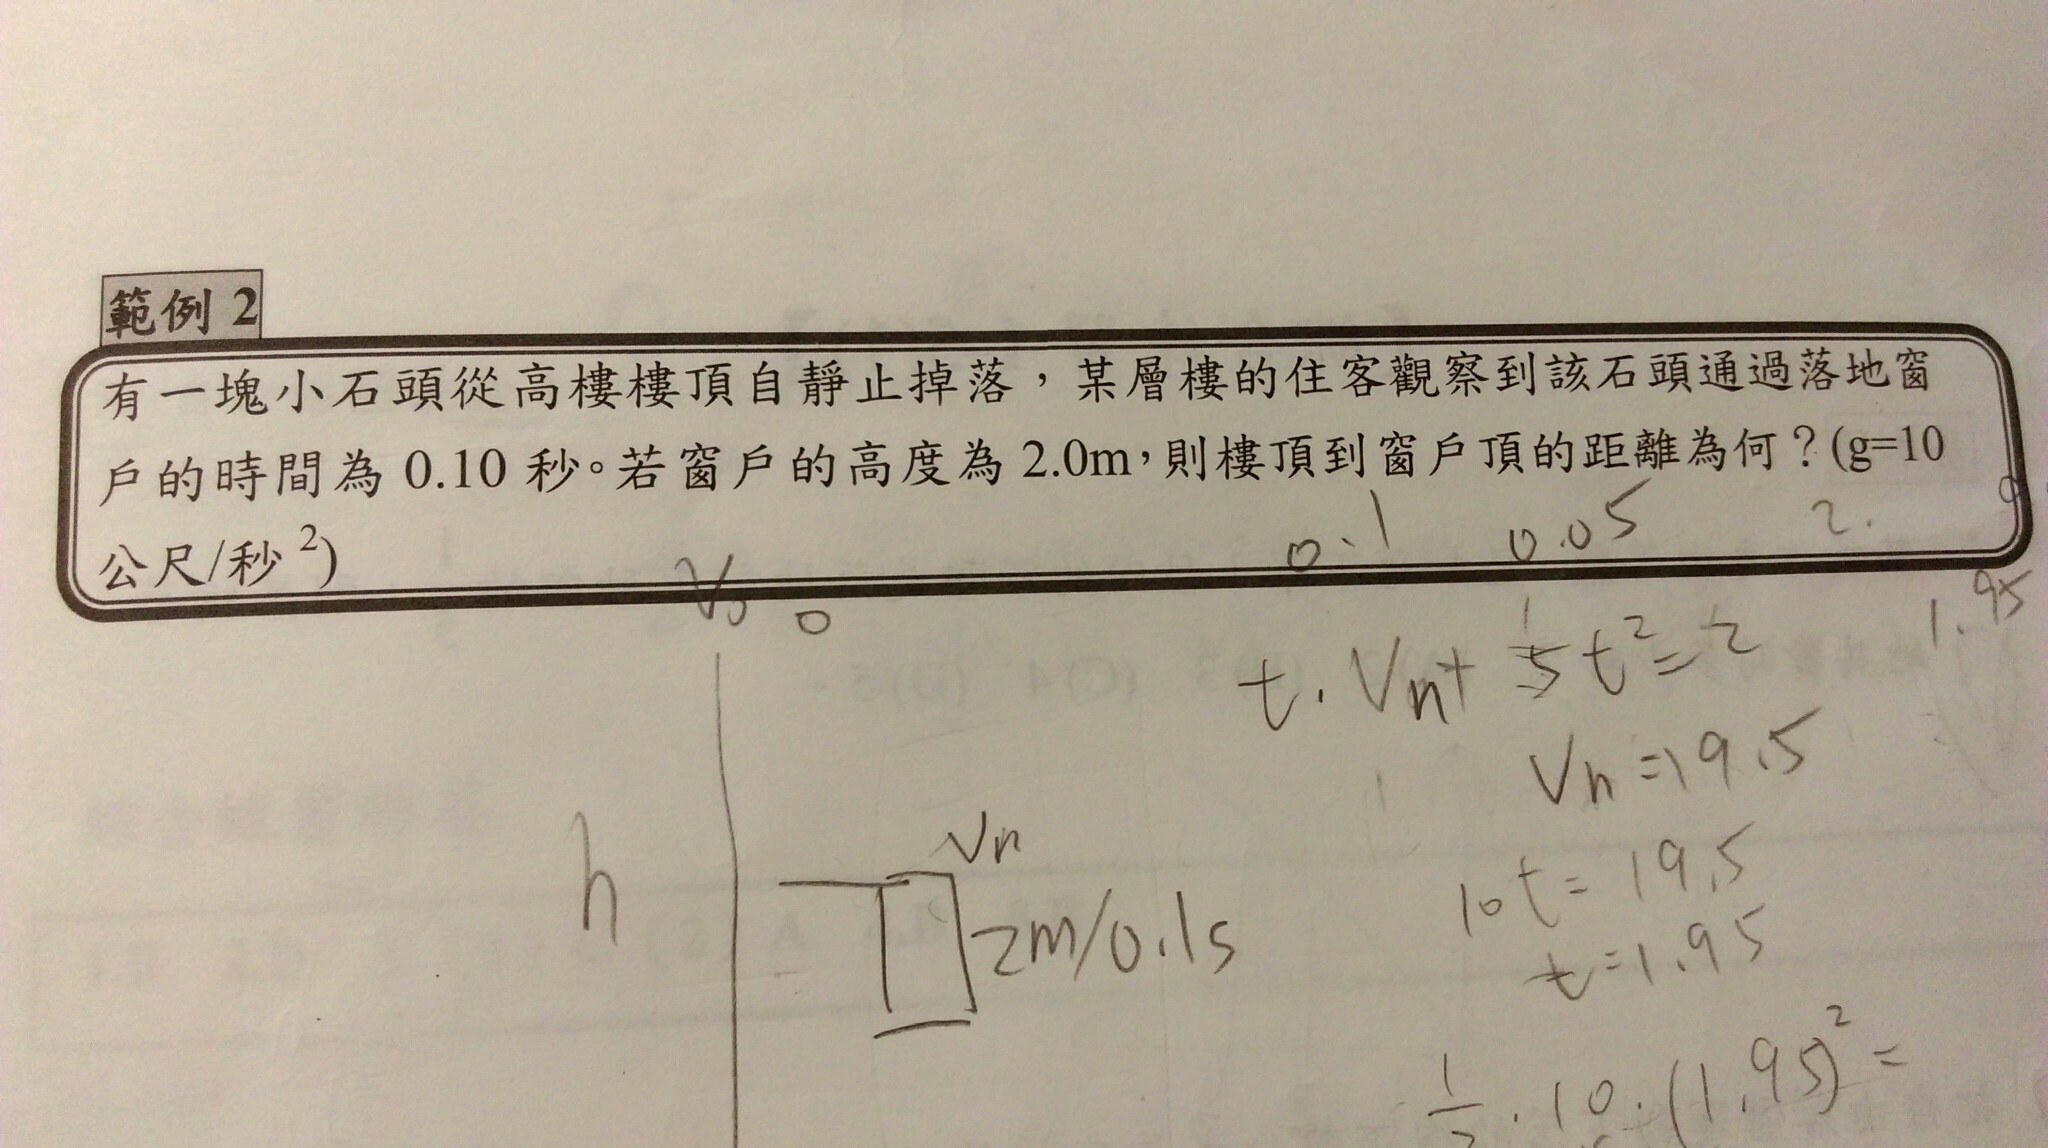 範例 2
有一塊小石頭從高樓樓頂自靜止掉落，某層樓的住客觀察到該石頭通過落地窗
戶的時間為 0.10 秒。若窗戶的高度為 2.0m，則樓頂到窗戶頂的距離為何？(g=10
公尺/秒²)
0.1 0.05 2.
V₀ 0
1.95
t. Vn+ 5t²=2
Vn=19.5
h
Vn
10t=19.5
2m/0.1s
t=1.95
1/2.10.(1.95)²=